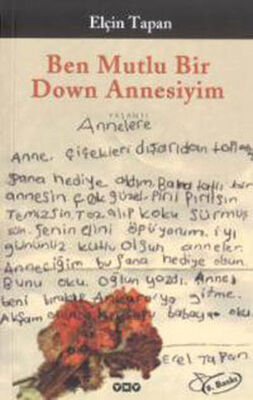 Elçin Tapan
Ben Mutlu Bir
Down Annesiyim
YAŞANTI
Annelere
Anne, çiçekleri dışarıdan
Sana hediye aldım. Bana tatlı bir
annesin çok güzel. Pırıl Pırılsın
Temizsin. Toz alıp koku sürmüş
sün. Senin elini öpüyorum. iyi
gününüz kutlu olsun anneler.
Anneciğim bu sana hediye olsun.
Bunu oku. oğlun yazdı. Anne
beni bırakıp Ankara'ya gitme.
Akşam babaya oku.
Erel Tapan
9. Baskı